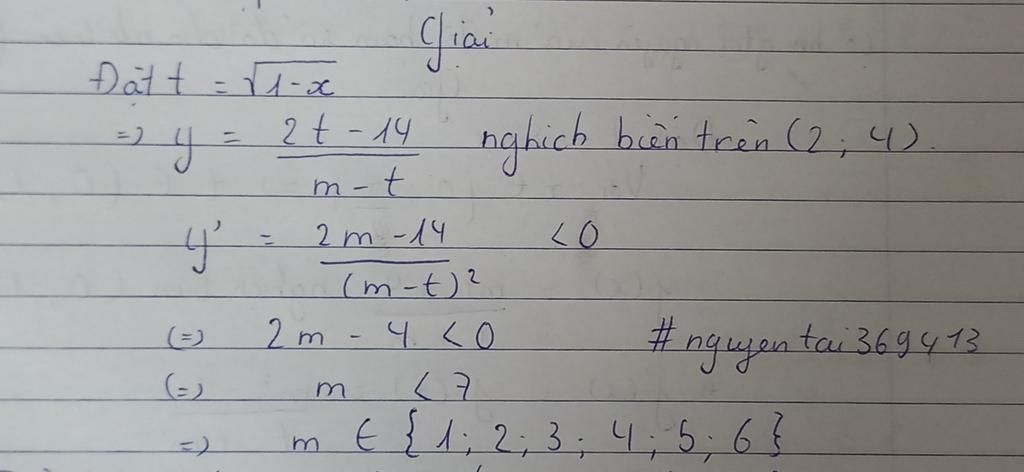 Giải
Đặt t = √1-x
=> y = 2t - 14 / m - t nghịch biến trên (2; 4).
y' = 2m - 14 / (m - t)² < 0
(=) 2m - 4 < 0 #nguyentai369413
(=) m < 7
=) m ∈ {1; 2; 3; 4; 5; 6}